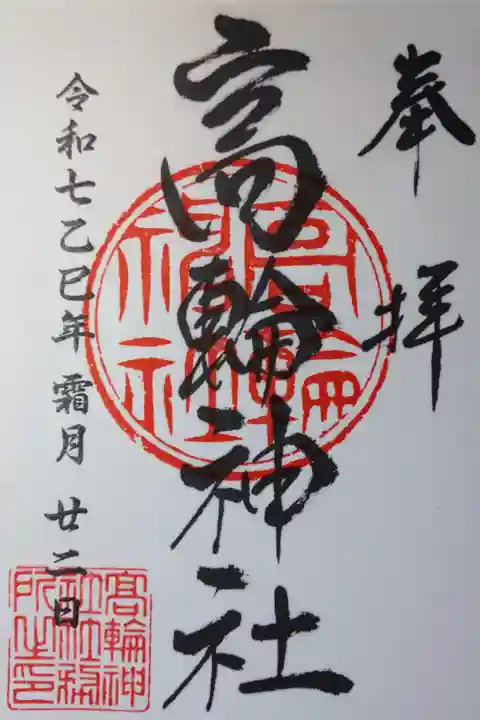 奉拝
高輪神社
令和七乙巳年霜月廿二日
高輪神社
髙輪神社社務所之印